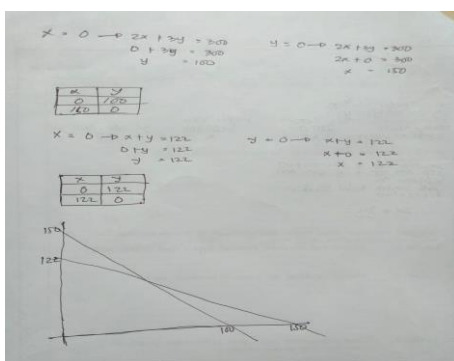 x = 0 → 2x + 3y = 300
0 + 3y = 300
y = 100
y = 0 → 2x + 3y = 300
2x + 0 = 300
x = 150
x y
0 100
150 0
x = 0 → x + y = 122
0 + y = 122
y = 122
y = 0 → x + y = 122
x + 0 = 122
x = 122
x y
0 122
122 0
150
122
100 150